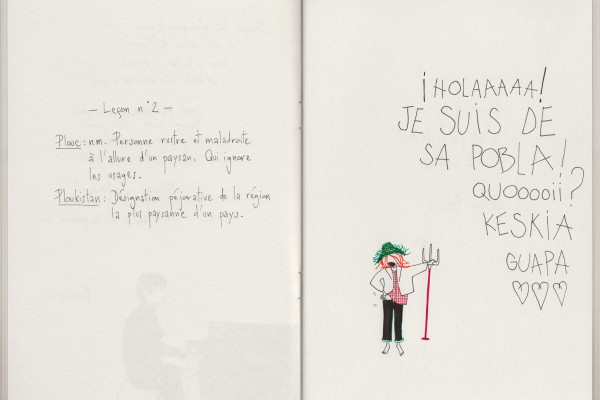 — Leçon n°2 —
Plouc : n.m. Personne rustre et maladroite
à l'allure d'un paysan. Qui ignore
les usages.
Ploukistan : Désignation péjorative de la région
la plus paysanne d'un pays.
¡HOLAAAAA!
JE SUIS DE
SA POBLA!
QUOOOOii?
KESKIA
GUAPA
♡♡♡